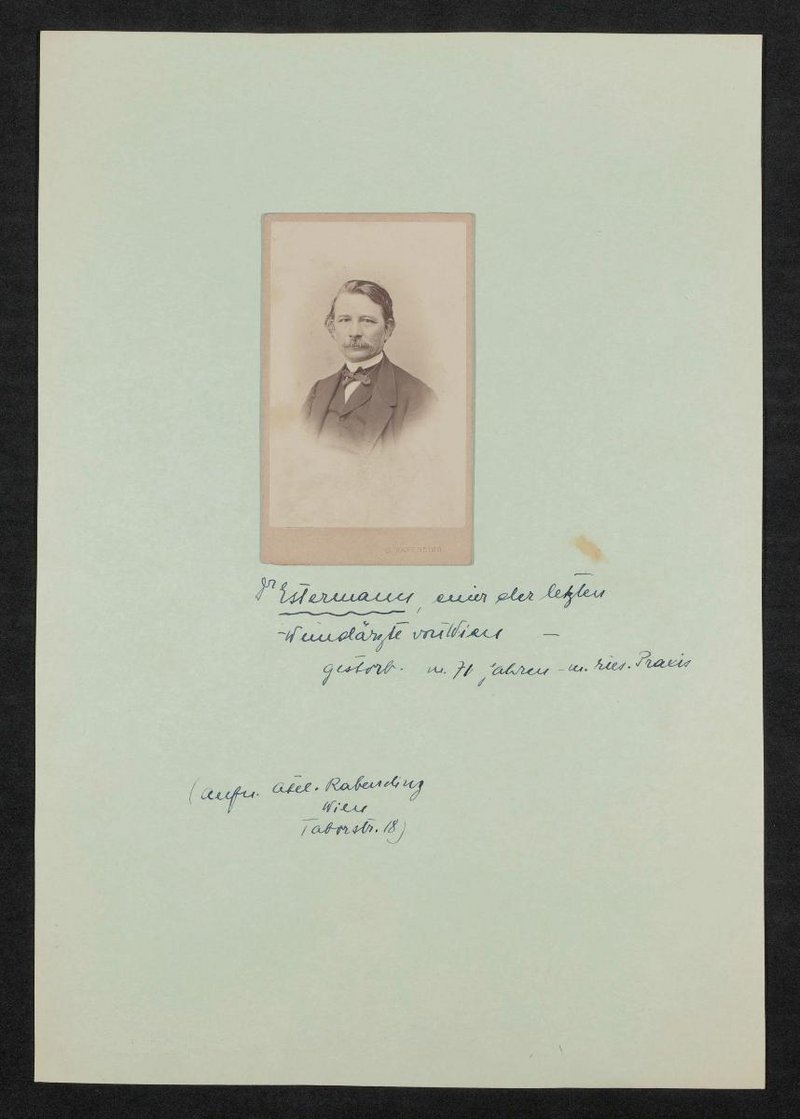 E. RABENDING
Dr Estermann, einer der letzten
Wundärzte von Wien —
gestorb. m. 71 Jahren - m. ries. Praxis
(Aufn. Atel. Rabending
Wien
Taborstr. 18)